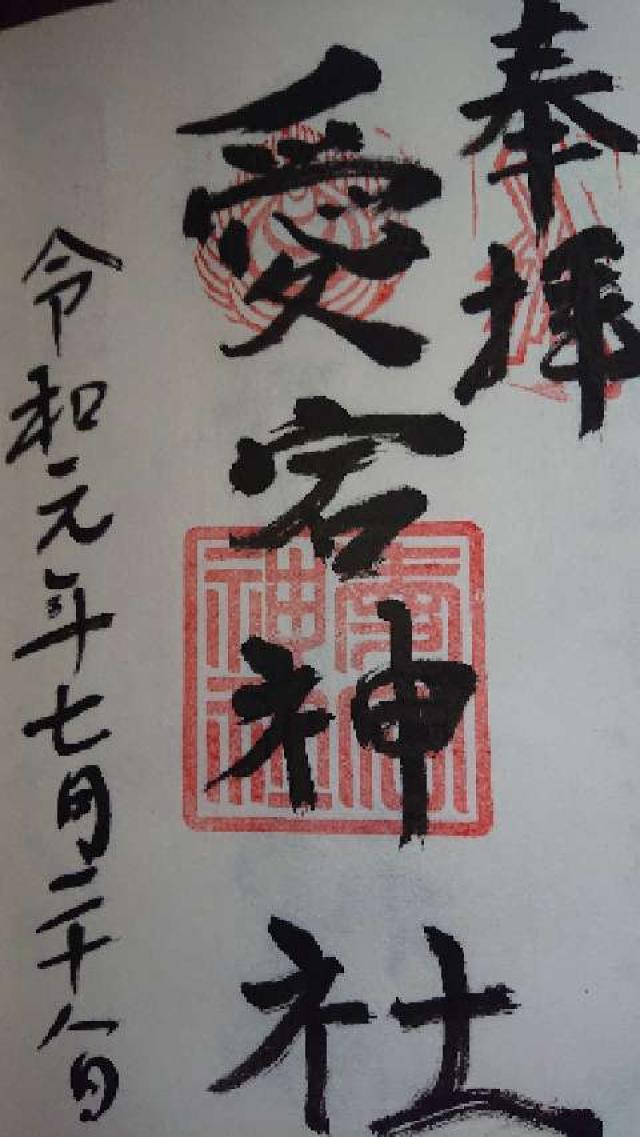 奉拝
愛宕神社
令和元年七月二十八日